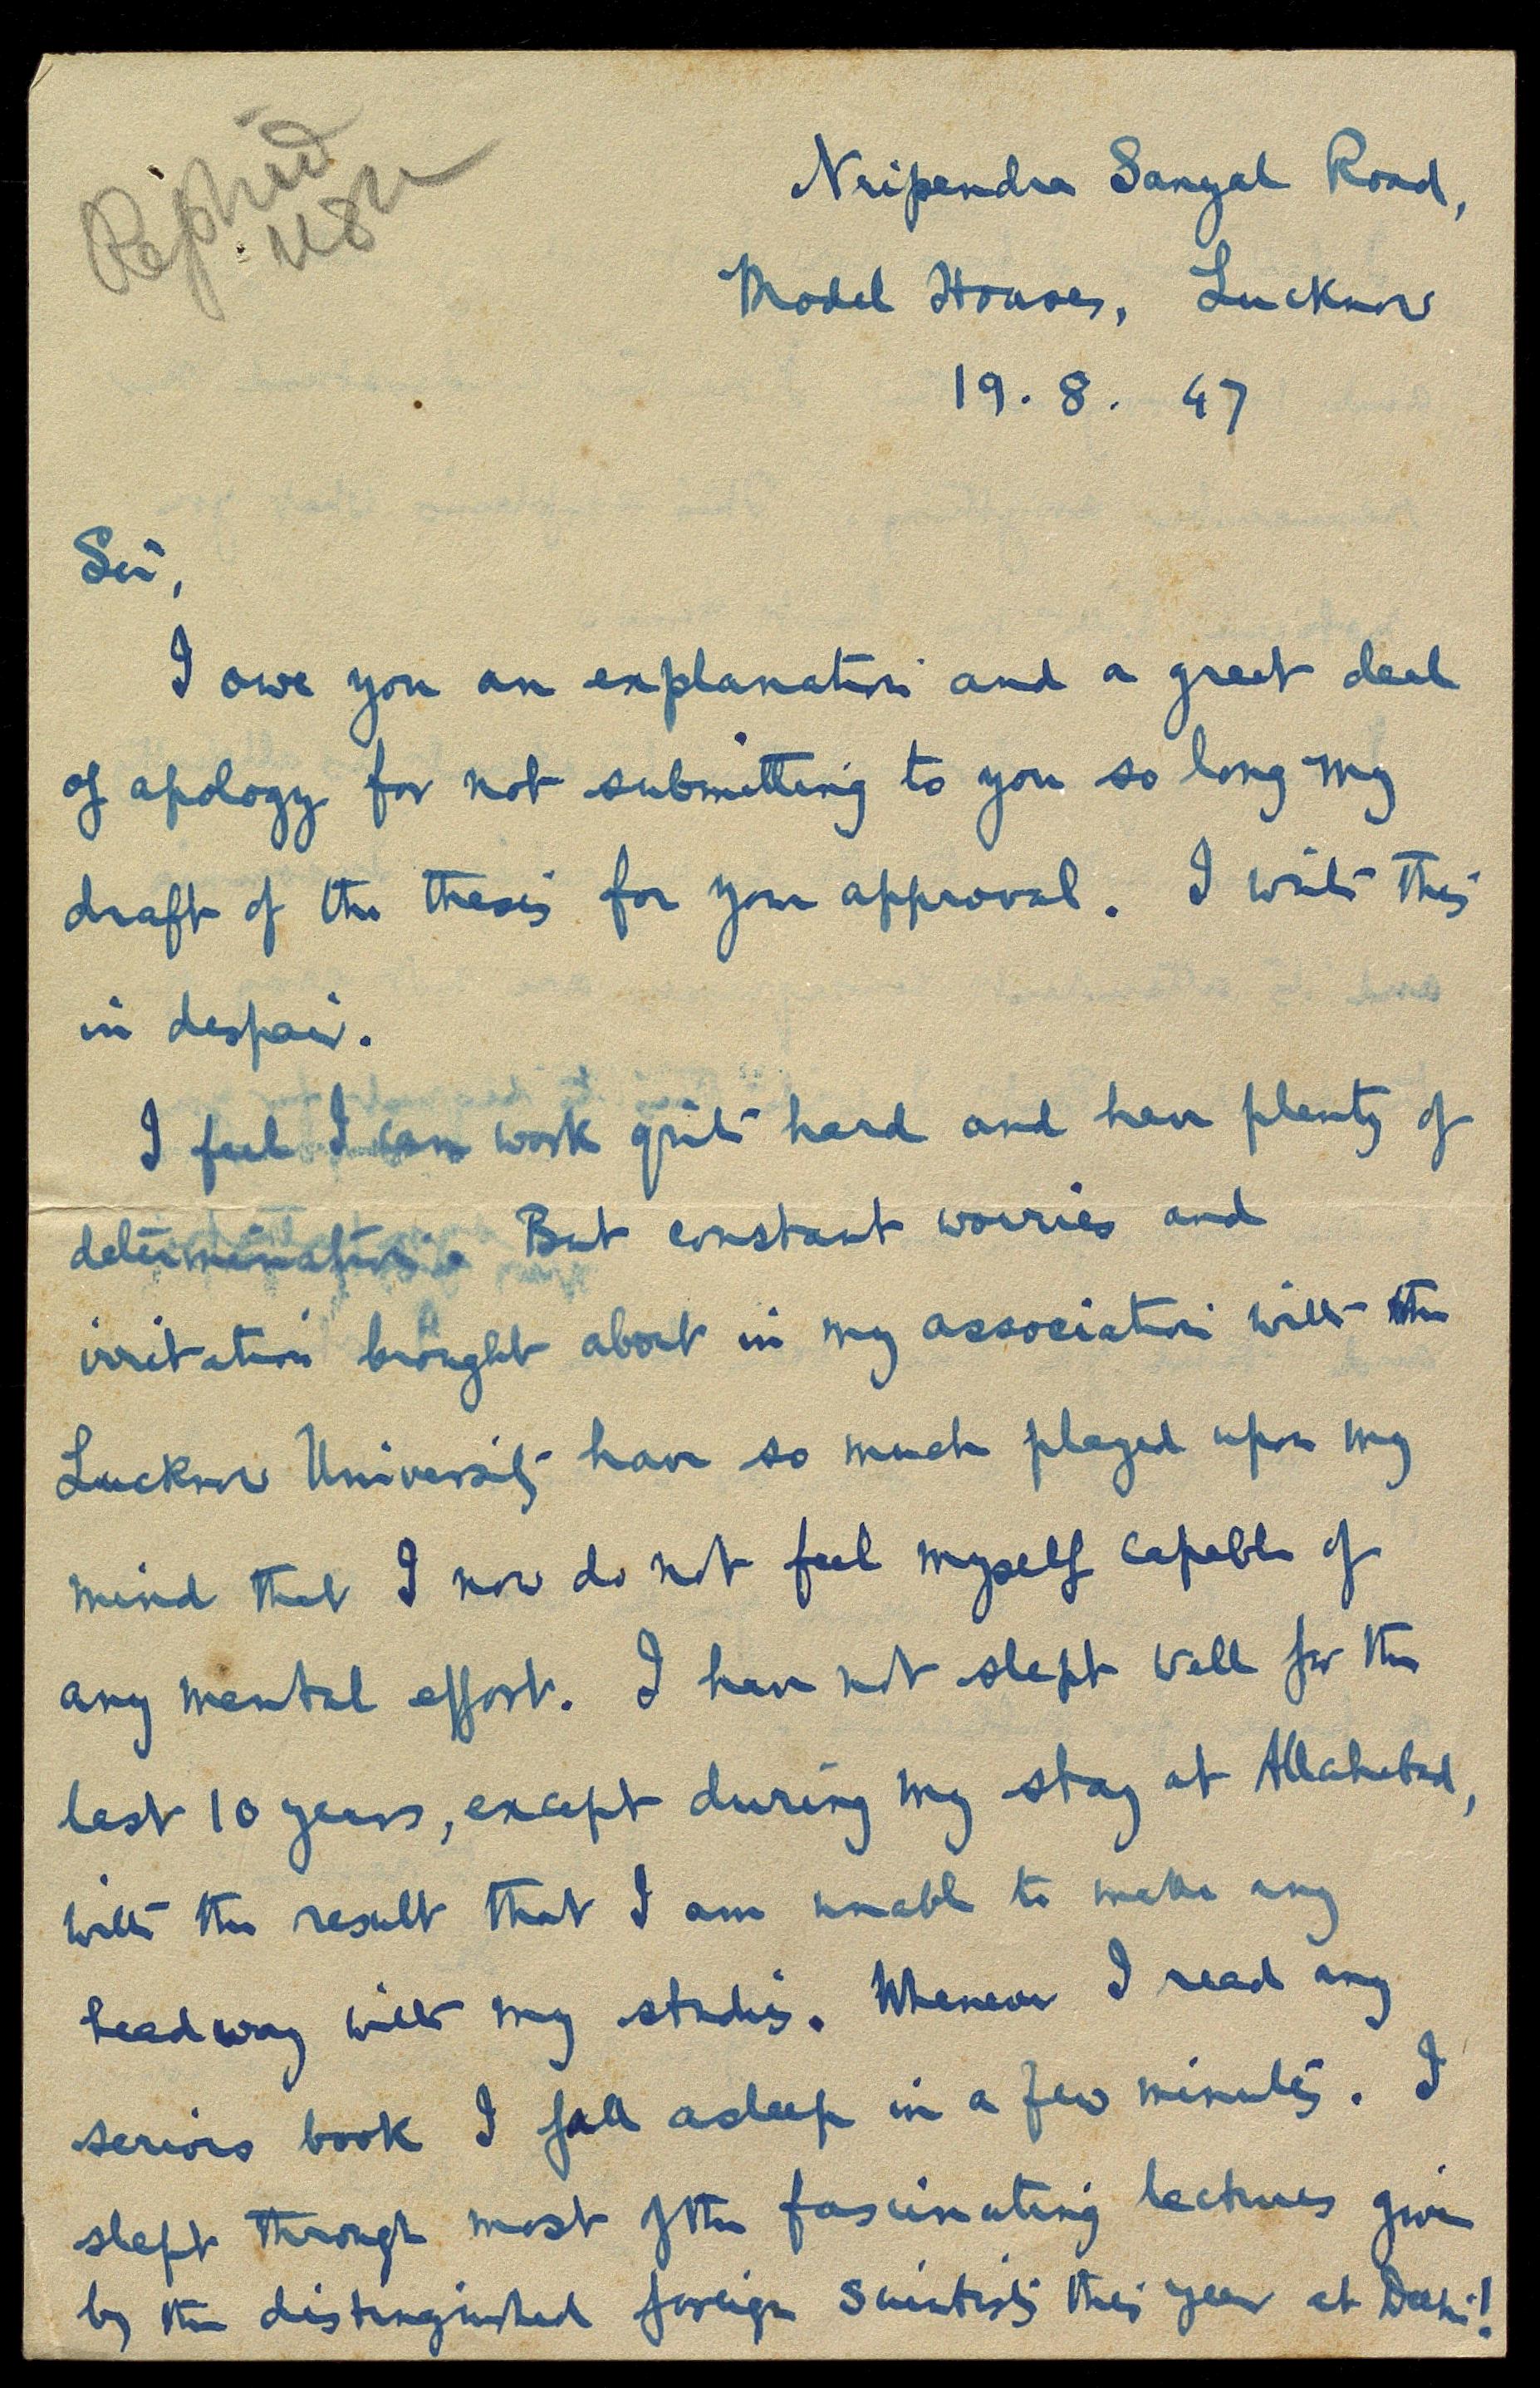 Replied
Nripendra Sanyal Road,
Model Houses, Lucknow
19. 8. 47
Sir,
I owe you an explanation and a great deal
of apology for not submitting to you so long my
draft of the thesis for your approval. I write this
in despair.
I feel I can work quite hard and have plenty of
determination. But constant worries and
irritation brought about in my association with the
Lucknow University have so much played upon my
mind that I now do not feel myself capable of
any mental effort. I have not slept well for the
last 10 years, except during my stay at Allahabad,
with the result that I am unable to make any
headway with my studies. Whenever I read any
serious book I fall asleep in a few minutes. I
slept through most of the fascinating lectures given
by the distinguished foreign scientists this year at Delhi!